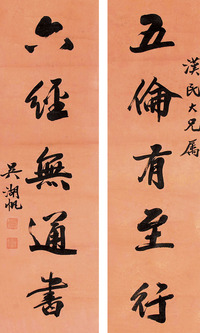 五倫有至行
漢民大兄属
六經無通書
吳湖帆